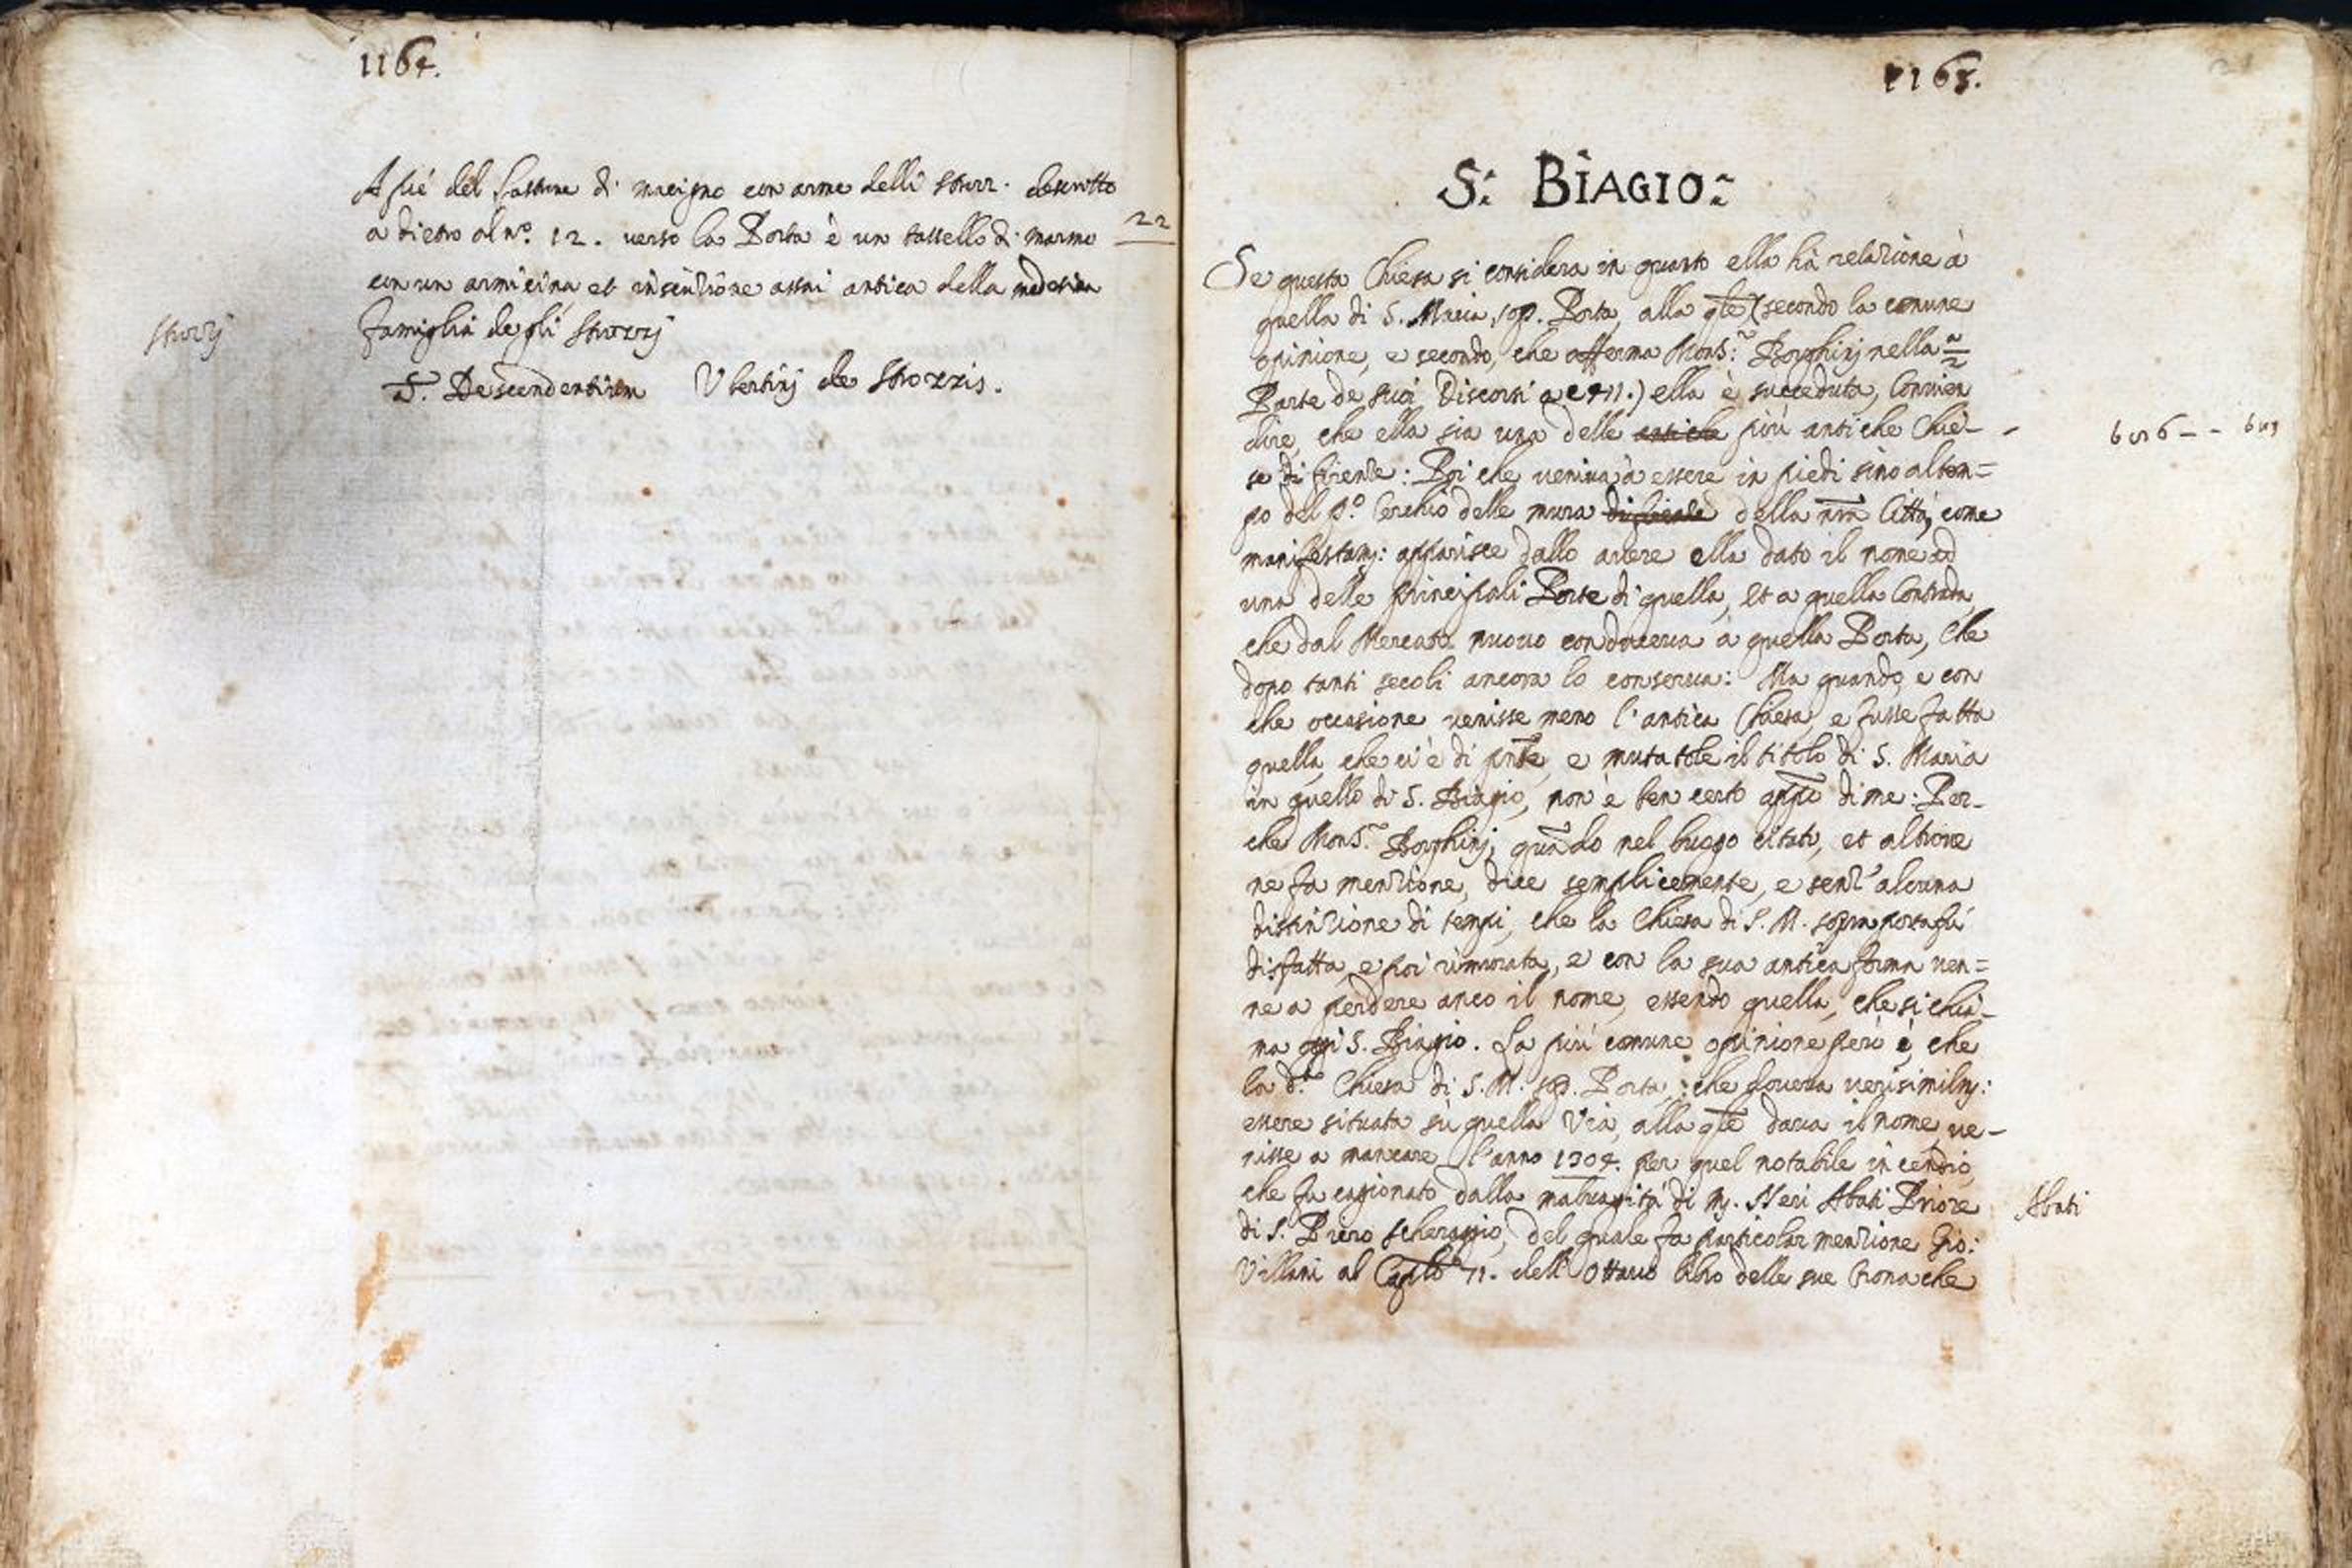 1164.
A pié del Lastrone di macigno con arme delli Strozz. descritto
a dietro al n.º 12. verso la Porta è un tassello di marmo
22
con un armicina et inscrizione assai antica della medesima
famiglia degli Strozzj
Strozzj
S. Descendentium Ubertinj de Strozzis.
1165.
S. BIAGIO
Se questa Chiesa si considera in quanto ella hà relazione à
quella di S. Maria sop. Porta, alla qle (secondo la comune
opinione, e secondo, che afferma Mons.r Borghinj nella 2
Parte de suoi Discorsi a c 411.) ella è succeduta, Convien
dire, che ella sia una delle antiche più antiche Chie-
6 - - 6
se di firenze: Poi che veniva à essere in piedi sino al tem=
po del p.º Cerchio delle mura di firenze della nra Città, come
manifestam: apparisce dallo avere ella dato il nome ad
una delle principali Porte di quella, et a quella Contrada,
che dal Mercato nuovo conduceva à quella Porta, Che
dopo tanti secoli ancora lo conserva: Ma quando e con
che occasione venisse meno l'antica Chiesa, e fusse fatta
quella, che ci è di pnte, e mutatole il titolo di S. Maria
in quello di S. Biagio, non è ben certo app.º di me: Per-
che Mons.r Borghinj, quando nel luogo citato, et altrove
ne fa menzione, dice semplicemente, e senz' alcuna
distinzione di tempi, che la Chiesa di S. M. sopra porta fù
disfatta, e poi rimurata, e con la sua antica forma ven=
ne a perdere anco il nome, essendo quella, che si chia-
ma oggi S. Biagio. La più comune opinione però è, che
la d.ª Chiesa di S. M. sop. Porta, che doveva verisimilm:
essere situata sù quella Via, alla qle dava il nome, ve-
nisse a mancare l'anno 1304. per quel notabile incendio,
che fu cagionato dalla malvagità di M. Neri Abati Priore
Abati
di S. Piero scheraggio, del quale fa particolar menzione Gio:
Villani al Caplo 71. dell' Ottavo libro delle sue Cronache